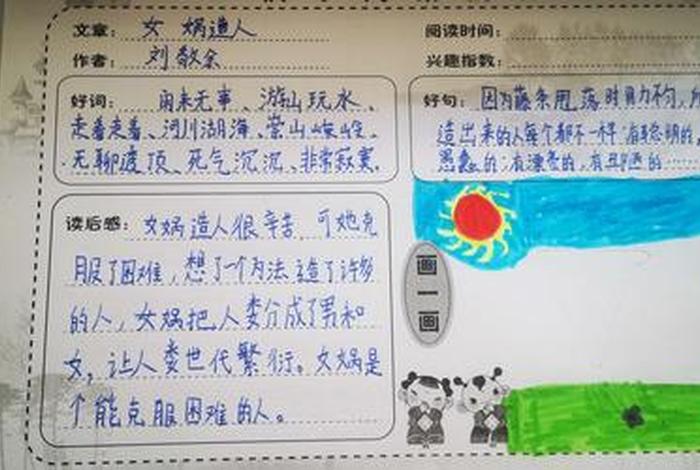 文章：女娲造人
阅读时间：
作者：刘敬余
兴趣指数：
好词：闲来无事、游山玩水、
走着走着、河川湖海、崇山峻岭、
无聊透顶、死气沉沉、非常寂寞。
好句：因为藤条甩落时用力不匀，所
造出来的人每个都不一样，有聪明的，
愚蠢的；有漂亮的，有丑陋的……
读后感：女娲造人很辛苦，可她克
服了困难，想了一个办法造了许多
的人，女娲把人类分成了男和
女，让人类世代繁衍。女娲是
个能克服困难的人。
画一画